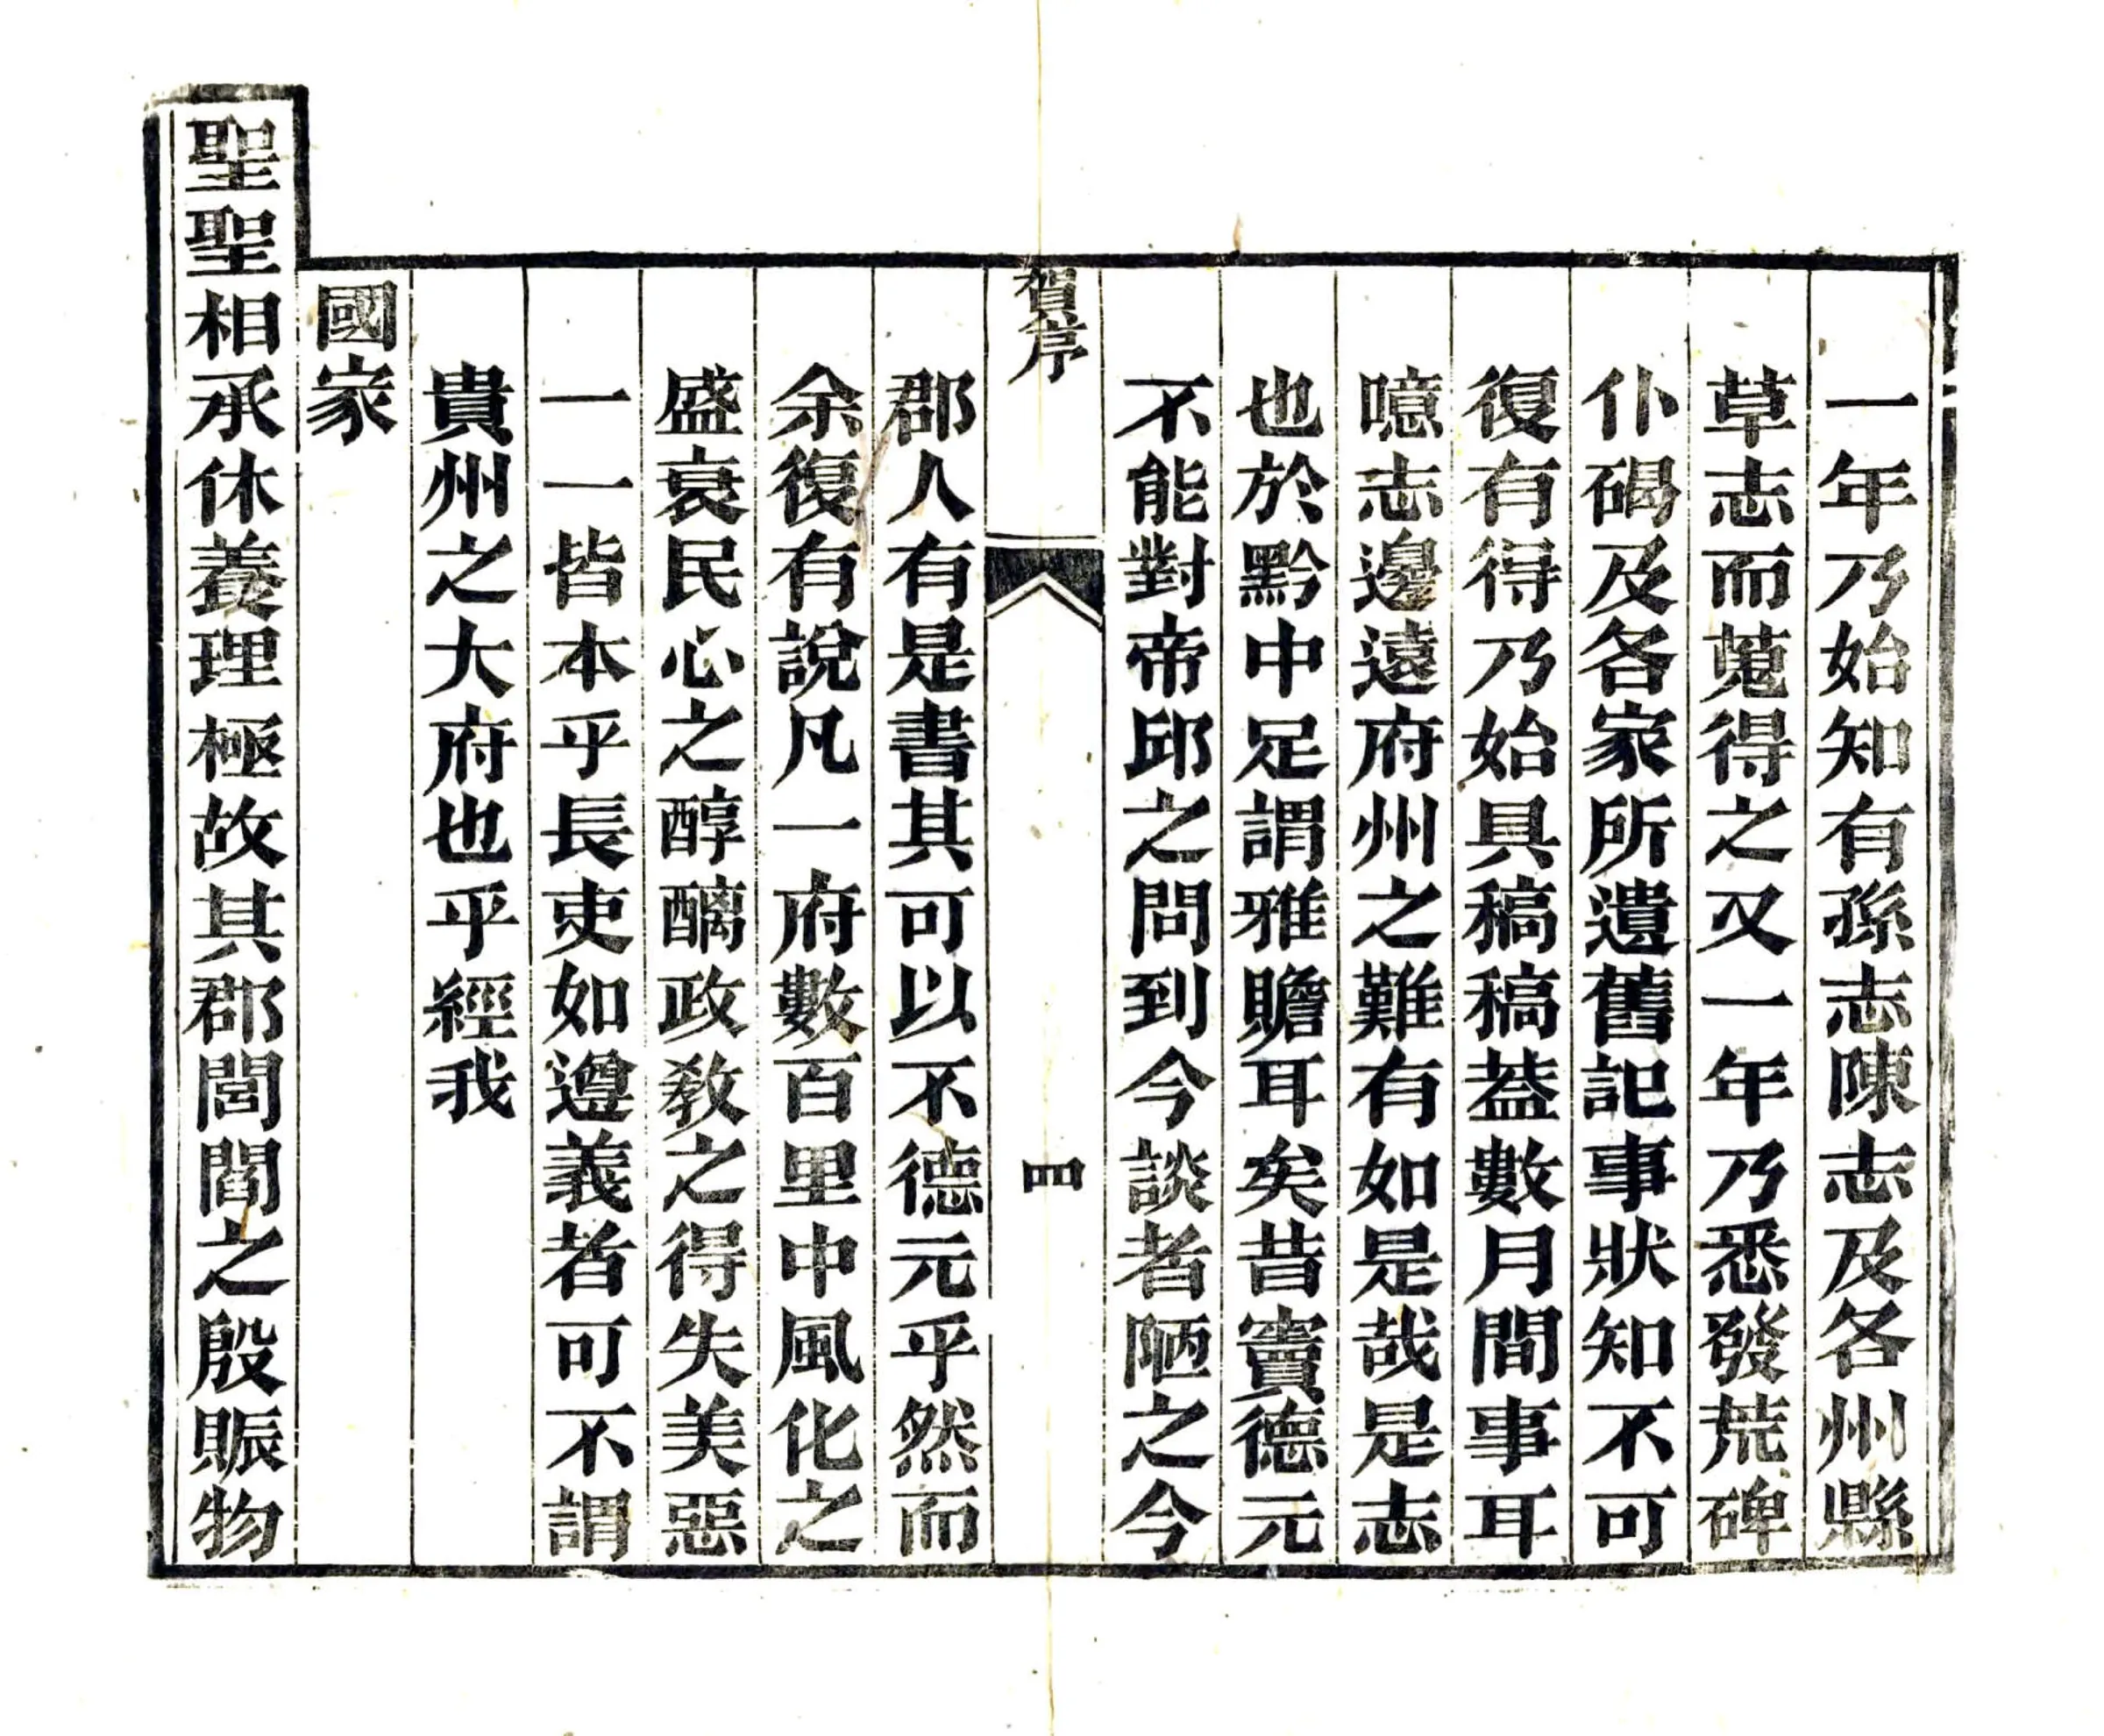 一年乃始知有孫志陳志及各州縣
草志而蒐得之又一年乃悉發荒碑
仆碣及各家所遺舊記事狀知不可
復有得乃始具稿稿葢數月間事耳
噫志邊遠府州之難有如是哉是志
也於黔中足謂雅贍耳矣昔竇德元
不能對帝邱之問到今談者陋之今
賀序
四
郡人有是書其可以不德元乎然而
余復有說凡一府數百里中風化之
盛衰民心之醇醨政教之得失美惡
一一皆本乎長吏如遵義者可不謂
貴州之大府也乎經我
國家
聖聖相承休養理極故其郡閭閻之殷賑物